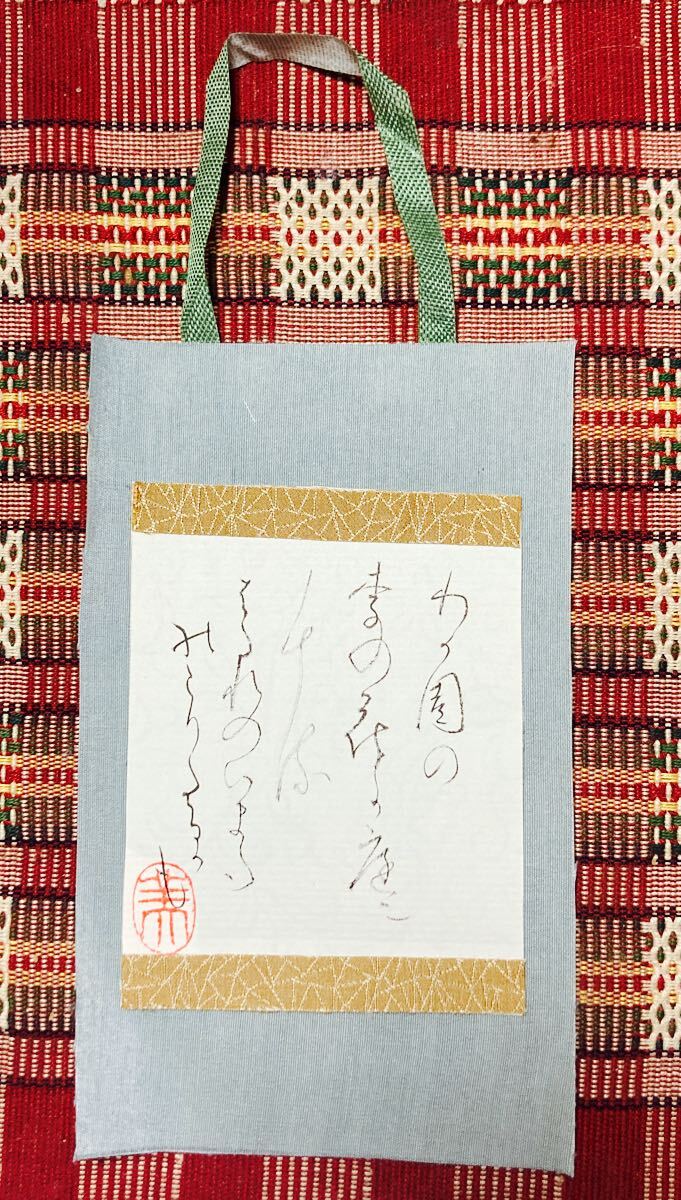 わか園の
李の花か庭に
はたれのいまた
のこりたるか
も